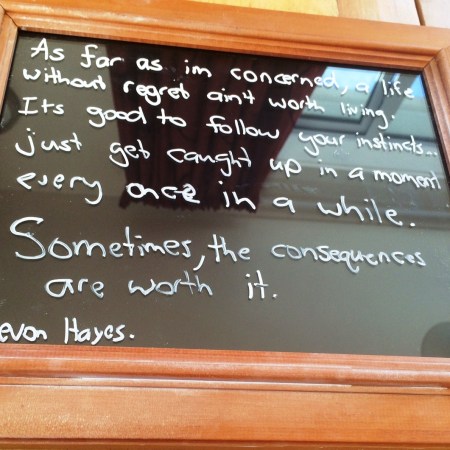 As far as im concerned, a life
without regret aint worth living.
Its good to follow your instincts...
just get caught up in a moment
every once in a while.
Sometimes, the consequences
are worth it.
evon Hayes.